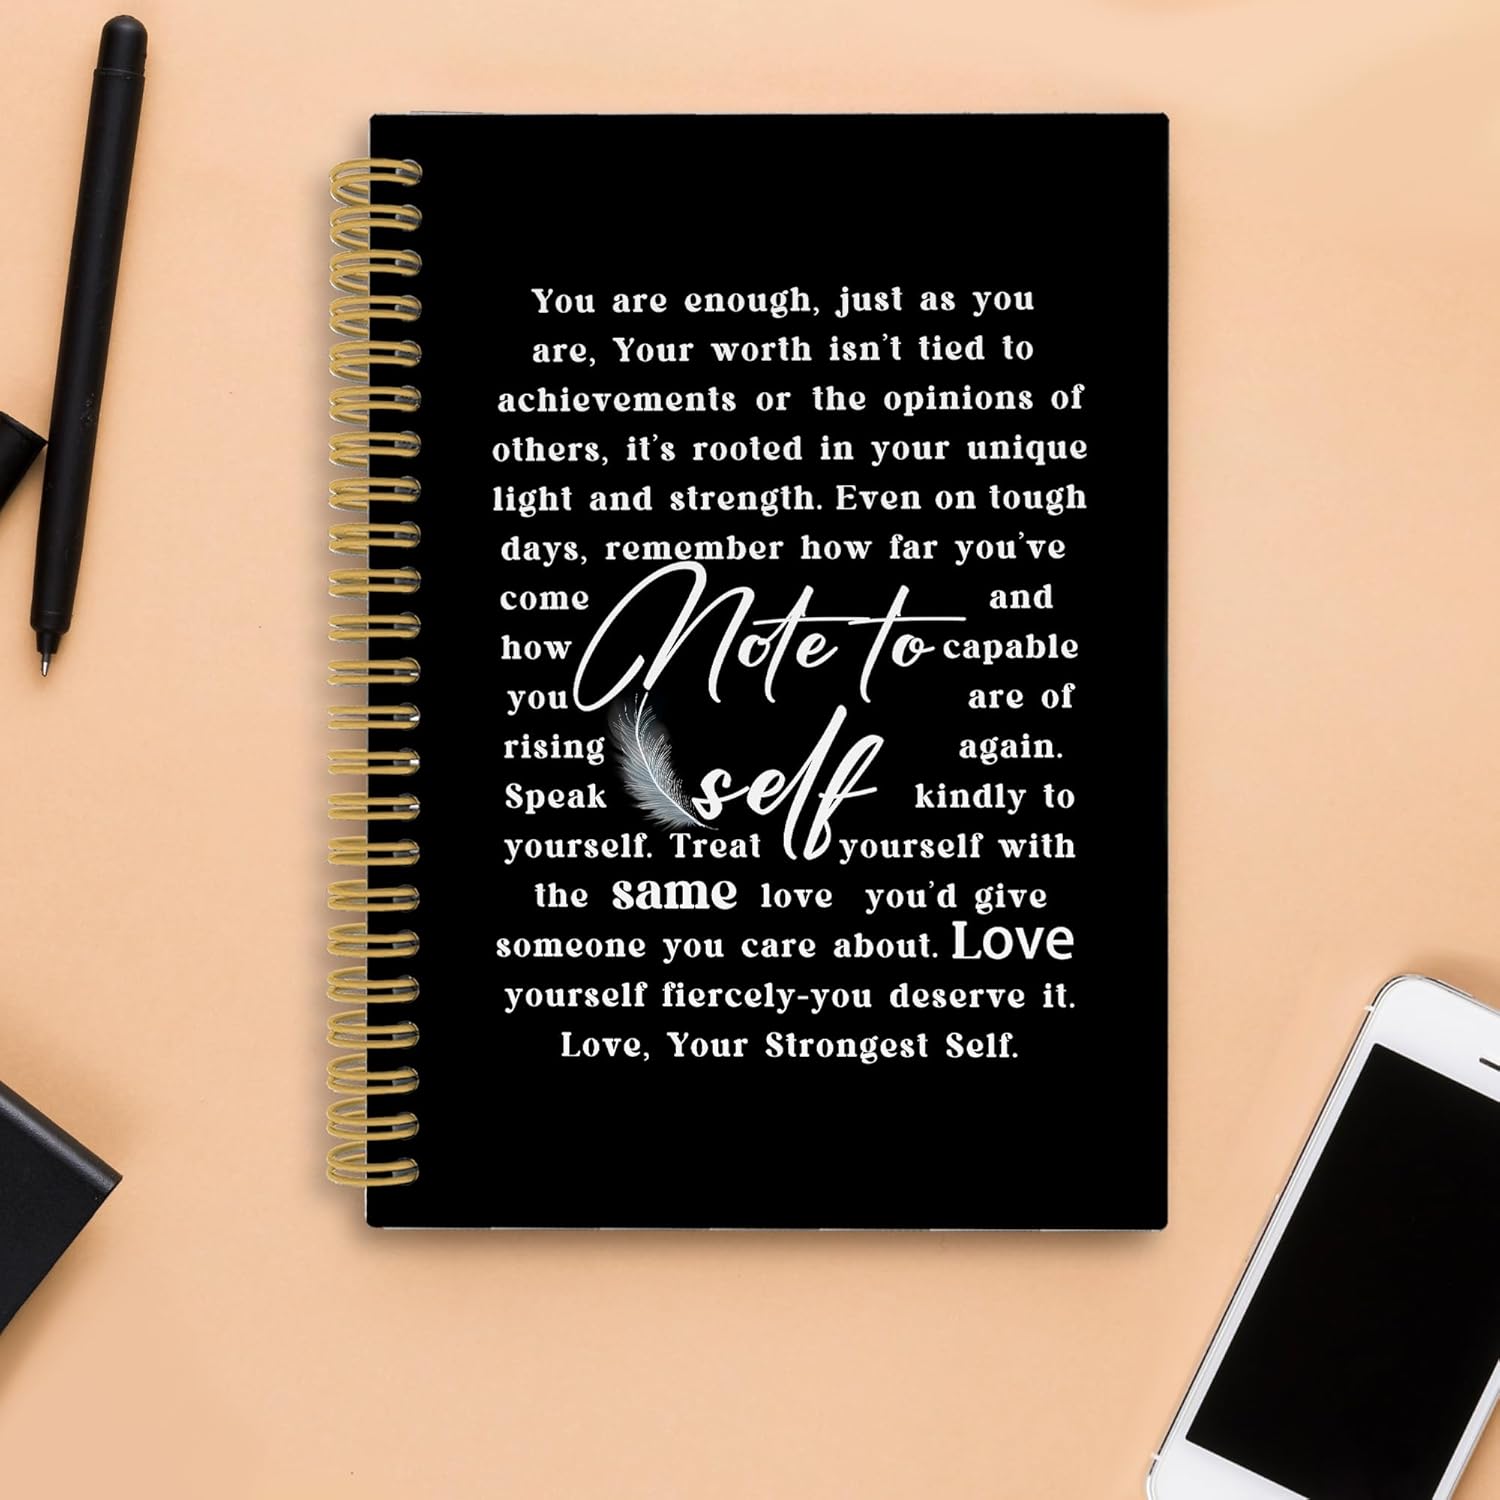 You are enough, just as you
are, Your worth isn't tied to
achievements or the opinions of
others, it's rooted in your unique
light and strength. Even on tough
days, remember how far you've
come and
how capable
you are of
rising again.
Speak kindly to
yourself. Treat yourself with
the same love you'd give
someone you care about. Love
yourself fiercely-you deserve it.
Love, Your Strongest Self.
Note to
self